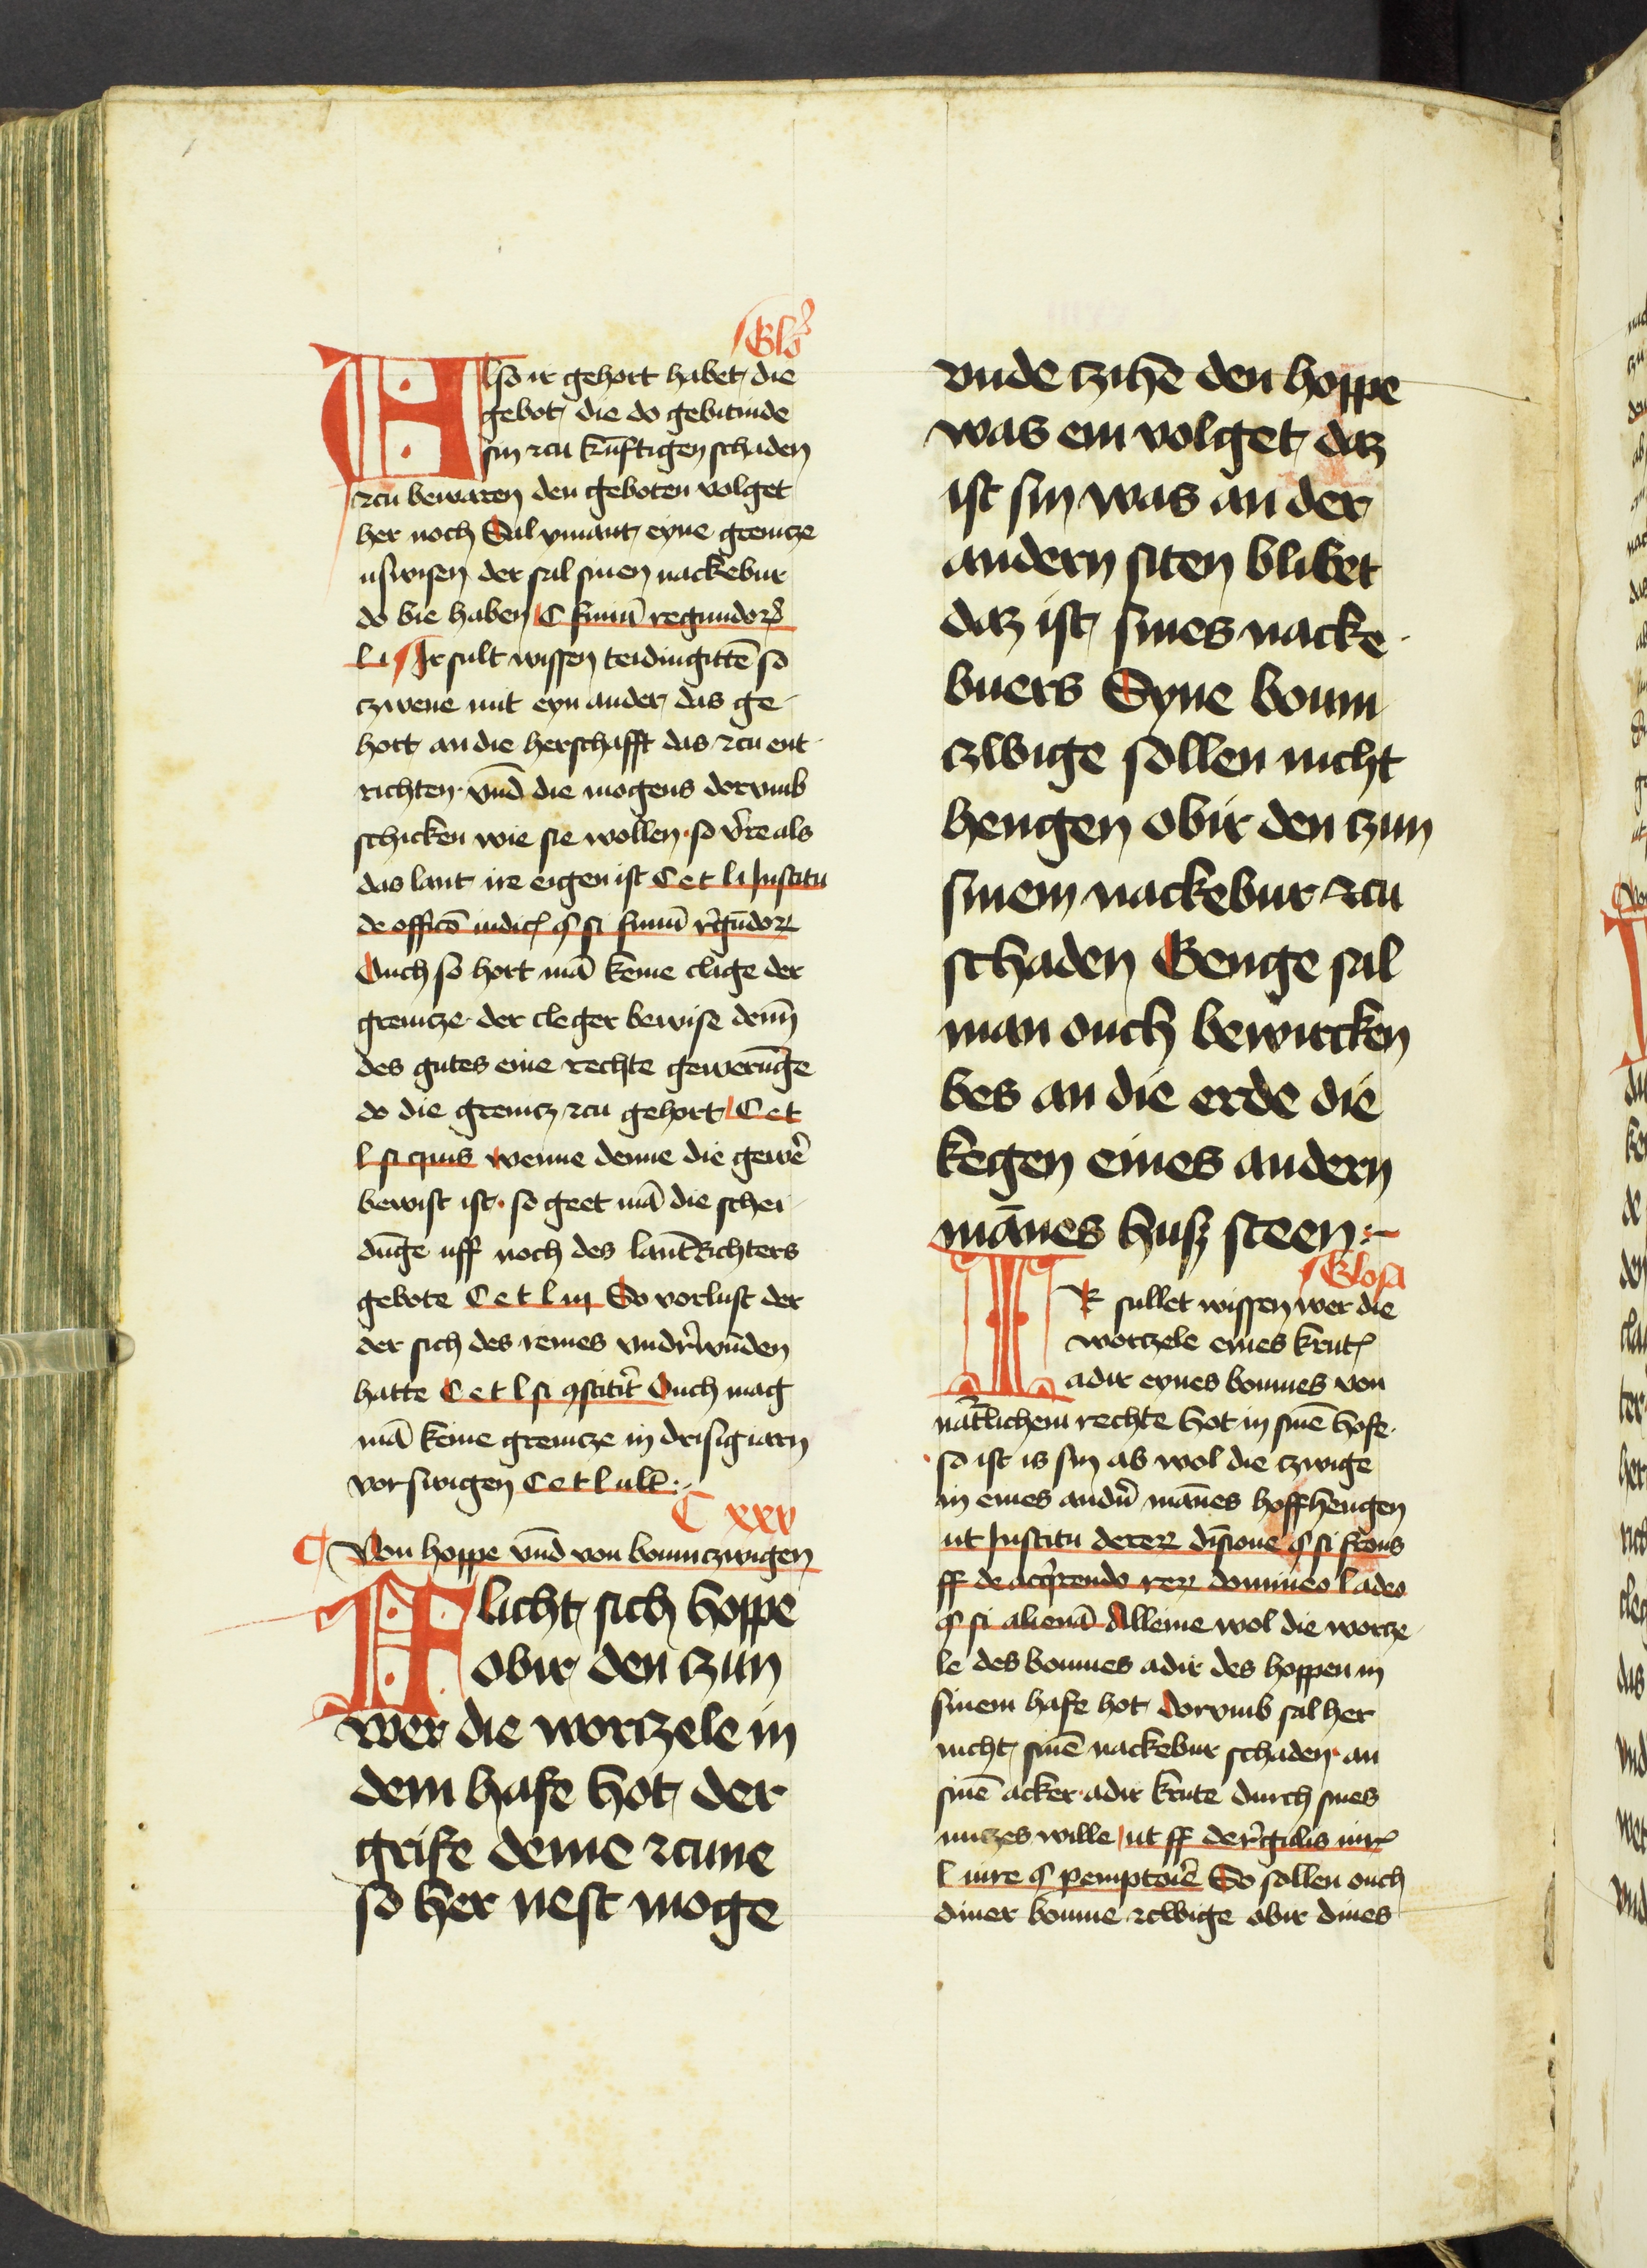 Glo
Also ir gehort habet die
gebot die do gebitinde
sin zcu kūnftigen schaden
zcu bewaren den geboten volget
her noch Sal ymant eyne grenicze
uswisen der sal sinen nackebur
do bie haben C finiū regundoꝝ
l i Ir sult wissen teidingittē so
czwene mit eyn ander das ge
hort an die herschafft das zcu ent
richten vnd die mogens dorvmb
schicken wie sie wollen so v're als
das lant ire eigen ist C e t l i Institu
de officō iudicꝭ § si finiū r'gūdoꝝ
Ouch so hort mā keine clage der
grenicze der cleger bewise denn
des gutes eine rechte gewerūge
do die grenicz zcu gehort C e t
l si quis wenne denne die gewe'
bewist ist so geet mā die schei
dūge uff noch des lantRichters
gebote C e t l iij So vorlust der
der sich des reines vndr'wūden
hatte C e t l si ꝯstitit' Ouch mag
mā keine grenicze in drisigiarn
vorswigen C e t l ult
C xxv
Von hoppe vnd von boumczwigen
Flicht sich hoppe
obir den czun
wer die worczele in
dem hafe hot der
grife deme zcune
so her nest moge
vnde czihē den hoppe
was em volget daz
ist sin was an der
andern siten blibet
daz ist sines nacke
buers Syne boum
czwige sollen nicht
hengen obir den czun
sinem nackebur zcu
schaden Genge sal
man ouch bewircken
bes an die erde die
kegen eines andern
mānes husz steen
Glosa
IR sullet wissen wer die
worczele eines krutꝭ
adir eynes boumes von
nāt'lichem rechte hot in sinē hofe
so ist is sin ab wol die czwige
in eines and'n mānes hoff hengen
ut Institu dereꝝ diūsione § si frons
ff de acq'rendo reꝝ dominio l adeo
§ si alienā Alleine wol die worcze
le des boumes adir des hoppen in
sinem hafe hot dorvmb sal her
nicht sinē nackebur schaden an
sinē acker adir krute durch sines
nuczes wille ut ff de r'gulis iurꝭ
l iure § pemptorie So sollen ouch
diner boume zcwige obir dines